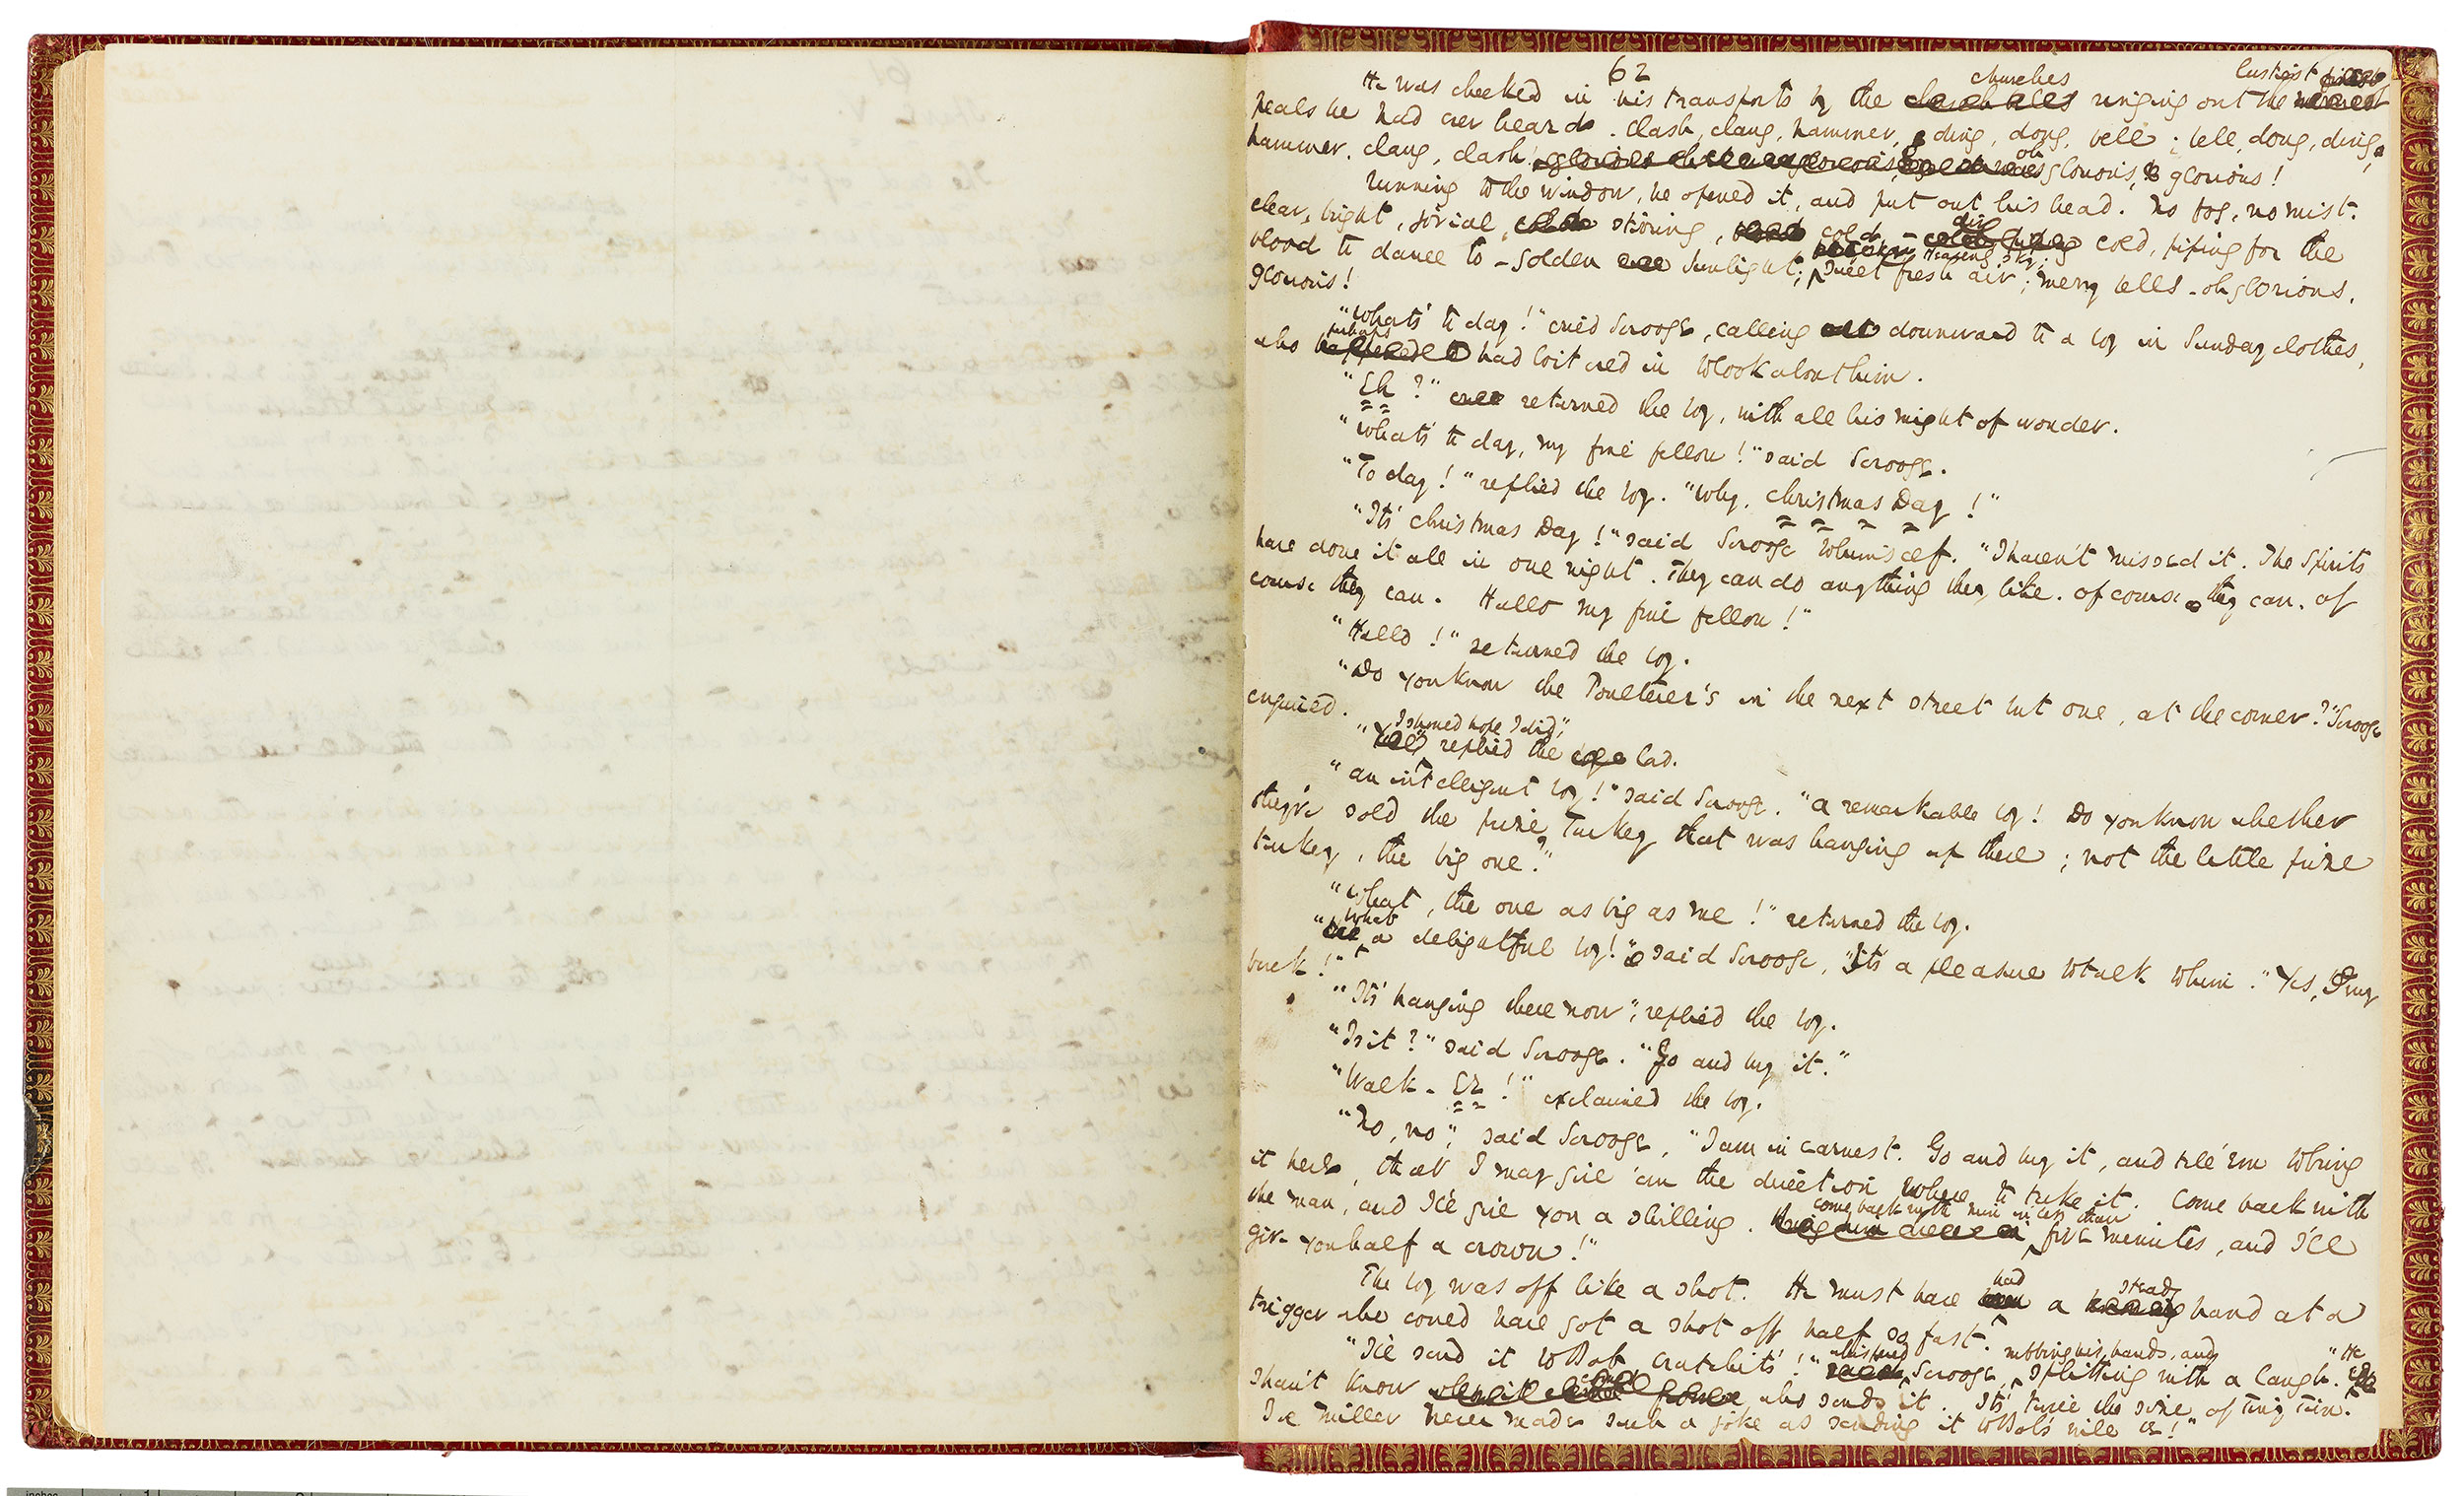 62
He was checked in his transports by the churches ringing out the lustiest
peals he had ever heard. Clash, clang, hammer, ding, dong, bell; bell, dong, ding,
hammer, clang, clash! oh glorious, glorious!
Running to the window, he opened it, and put out his head. No fog, no mist.
clear, bright, jovial, stirring, cold cold, piping for the
blood to dance to - Golden sunlight; Heavenly sky; sweet fresh air; merry bells - oh glorious,
glorious!
"What's to day!" cried Scrooge, calling downward to a boy in Sunday clothes,
who perhaps had loitered in to look about him.
"Eh?" returned the boy, with all his might of wonder.
"What's to day, my fine fellow!" said Scrooge.
"To day!" replied the boy. "Why, Christmas Day!"
"It's Christmas Day!" said Scrooge to himself. "I haven't missed it. The Spirits
have done it all in one night. They can do anything they like. Of course they can. Of
course they can. Hallo my fine fellow!"
"Hallo!" returned the boy.
"Do you know the Poulterer's in the next street but one, at the corner?" Scrooge
enquired.
"I should hope I did," replied the lad.
"An intelligent boy!" said Scrooge. "A remarkable boy! Do you know whether
they've sold the prize Turkey that was hanging up there; not the little prize
turkey, the big one?"
"What, the one as big as me!" returned the boy.
"What a delightful boy!" said Scrooge, "It's a pleasure to talk to him." Yes, my
buck!"
"It's hanging there now", replied the boy.
"Is it?" said Scrooge. "Go and buy it."
"Walk-ER!" exclaimed the boy.
"No, no", said Scrooge, "I am in earnest. Go and buy it, and tell 'em to bring
it here, that I may give 'em the direction where to take it. Come back with
the man, and I'll give you a shilling. Come back with him in less than five minutes, and I'll
give you half a crown!"
The boy was off like a shot. He must have had a steady hand at a
trigger who could have got a shot off half so fast.
"I'll send it to Bob Cratchit's!" whispered Scrooge, rubbing his hands, and splitting with a laugh. "He
shan't know who sends it. It's twice the size of Tiny Tim.
Joe Miller never made such a joke as sending it to Bob's will be!"